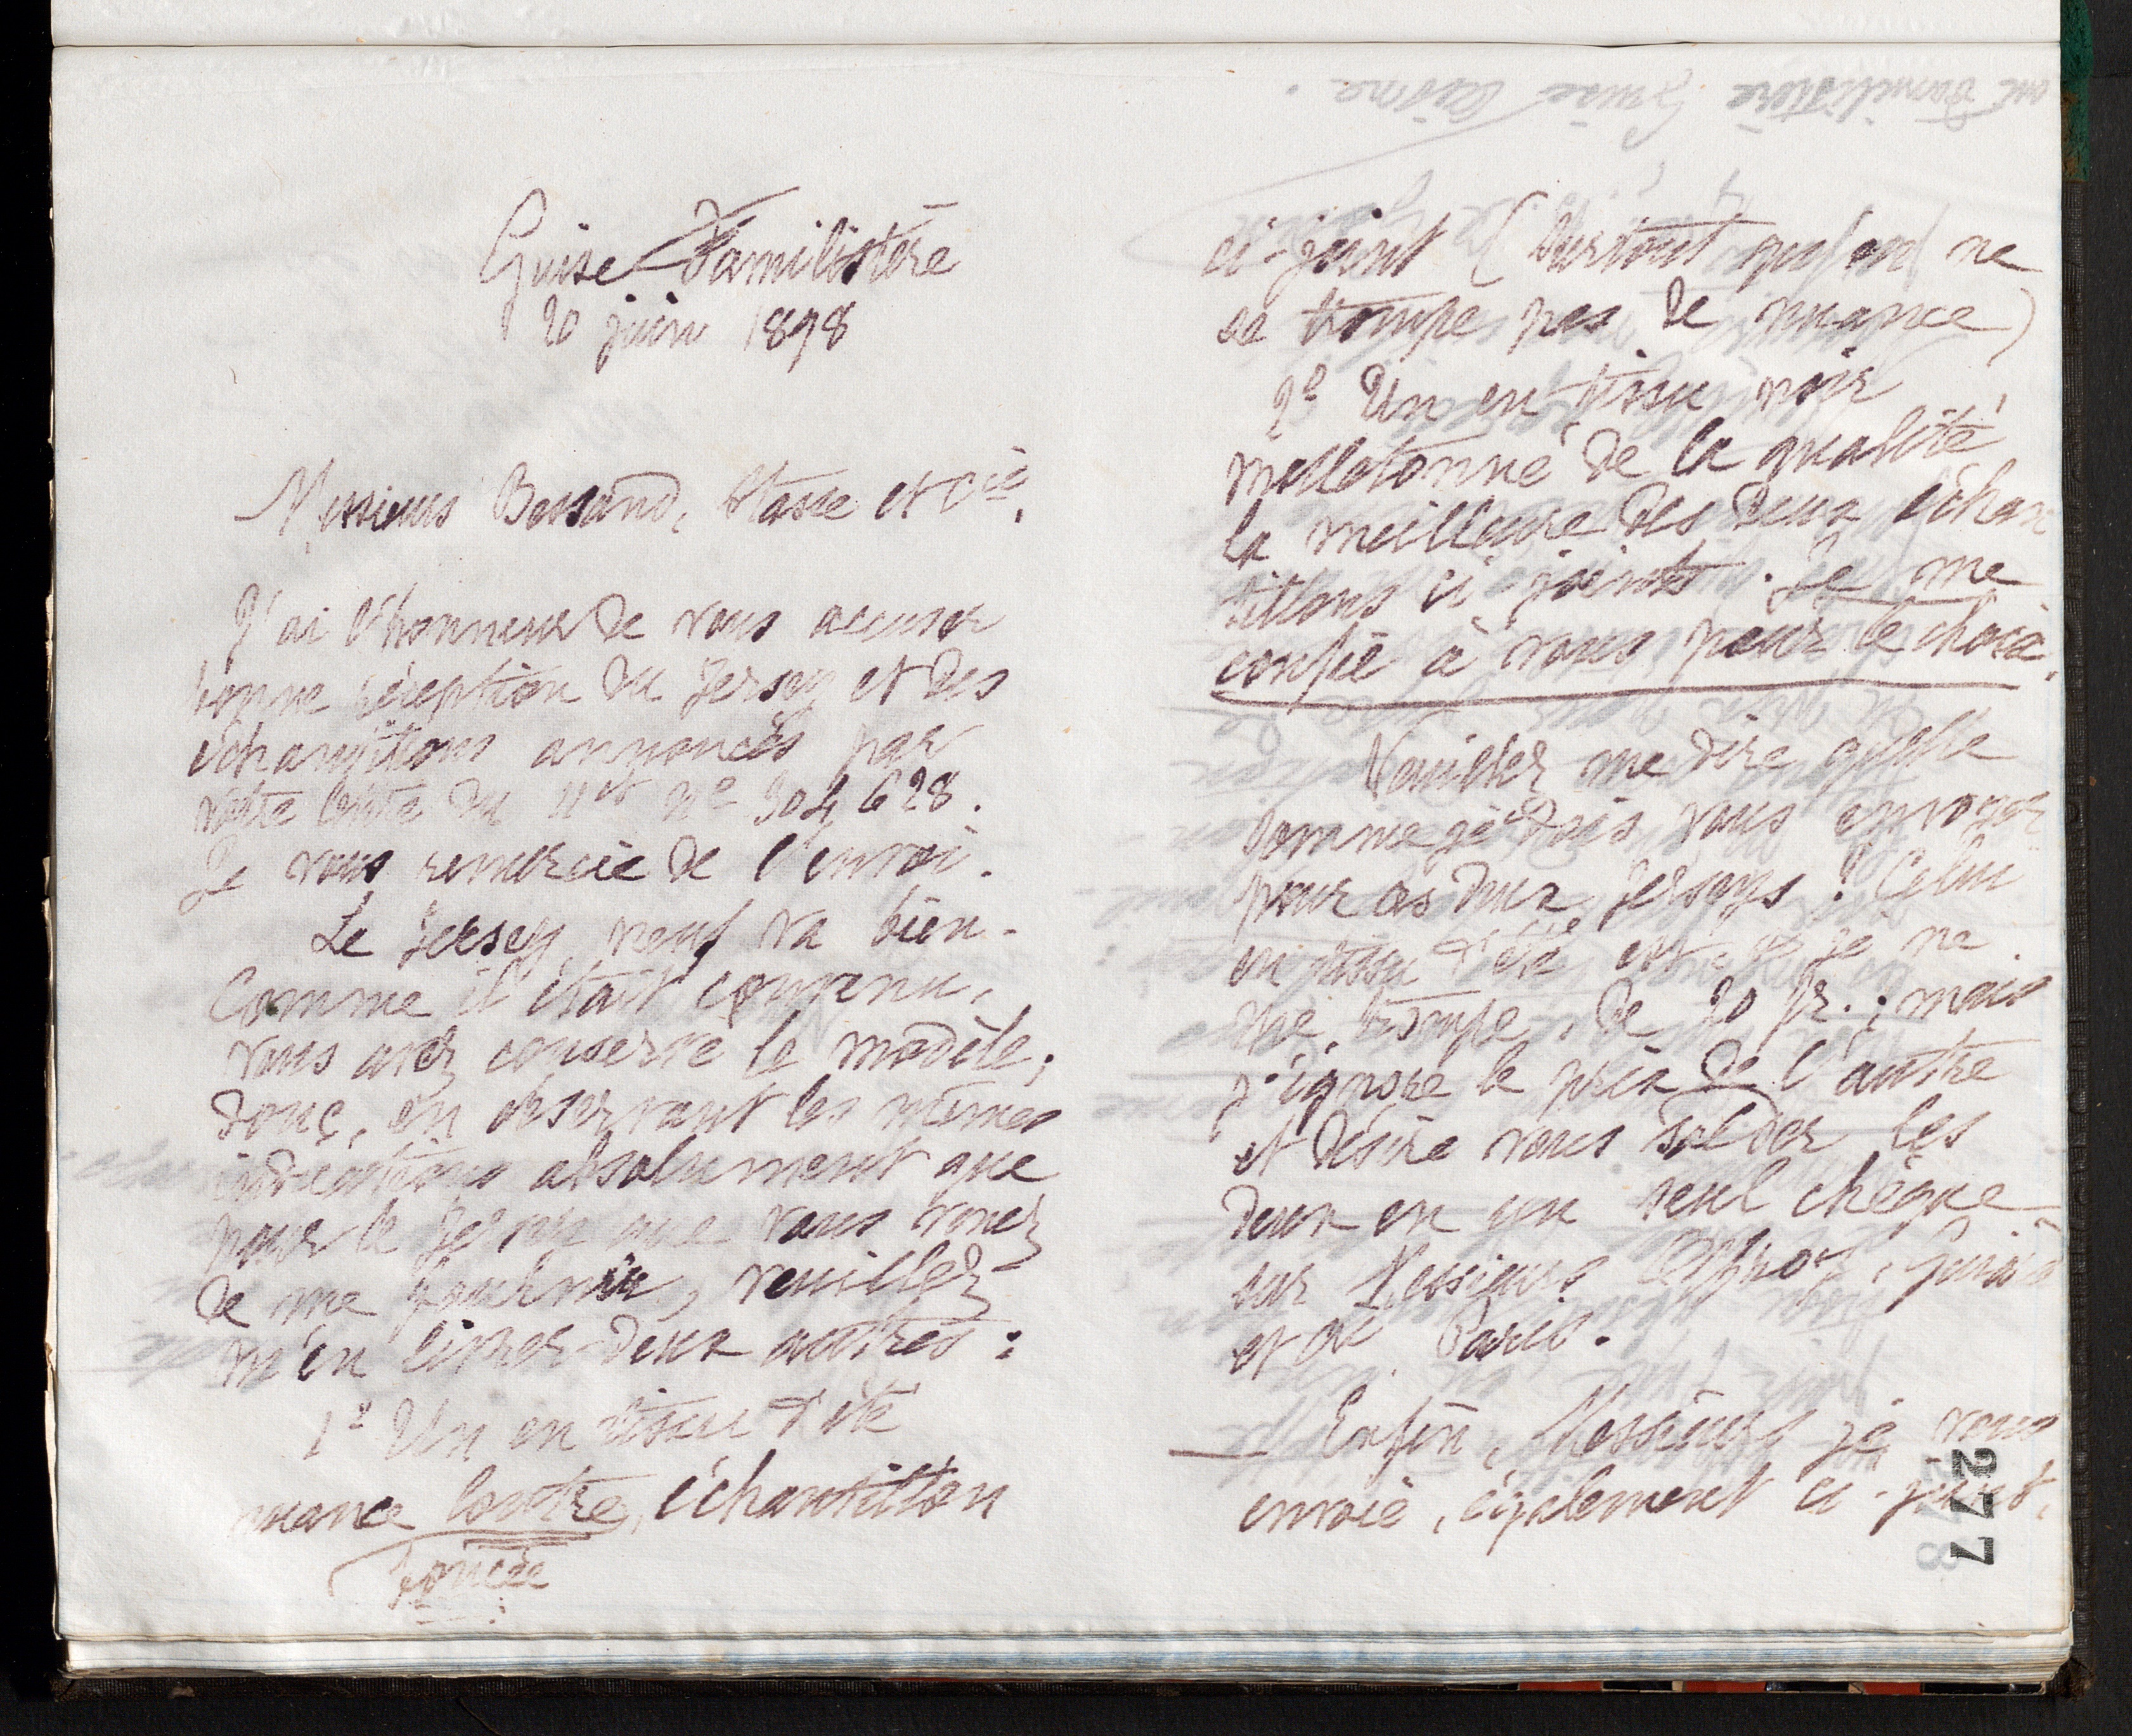 Guise Familistère
20 juin 1898
Messieurs Bessand, Stasse et Cie,
J'ai l'honneur de vous accuser
bonne réception du Jersey et des
échantillons annoncés par
votre lettre du 11 ct nº 304628.
Je vous remercie de l'envoi.
Le Jersey neuf va bien.
Comme il était convenu,
vous avez conservé le modèle;
donc, en observant les mêmes
indications absolument que
pour le Jersey que vous venez
de me fournir, veuillez
m'en livrer deux autres :
1º Un en tissu d'été
nuance loutre, échantillon
foncée
ci-joint (Surtout qu'on ne
se trompe pas de nuance)
2º Un en tissu noir
molletonné de la qualité
la meilleure des deux échan
tillons ci joints. Je me
confie à vous pour le choix.
Veuillez me dire quelle
somme je dois vous envoyer
pour ces deux Jerseys ? Celui
en tissu d'été est, si je ne
me trompe, de 20 fr. ; mais
j'ignore le prix de l'autre
et désire vous solder les
deux en un seul chèque
sur Messieurs
et Paris.
Enfin, Messieurs je vous
envoie, également ci-joint,
277